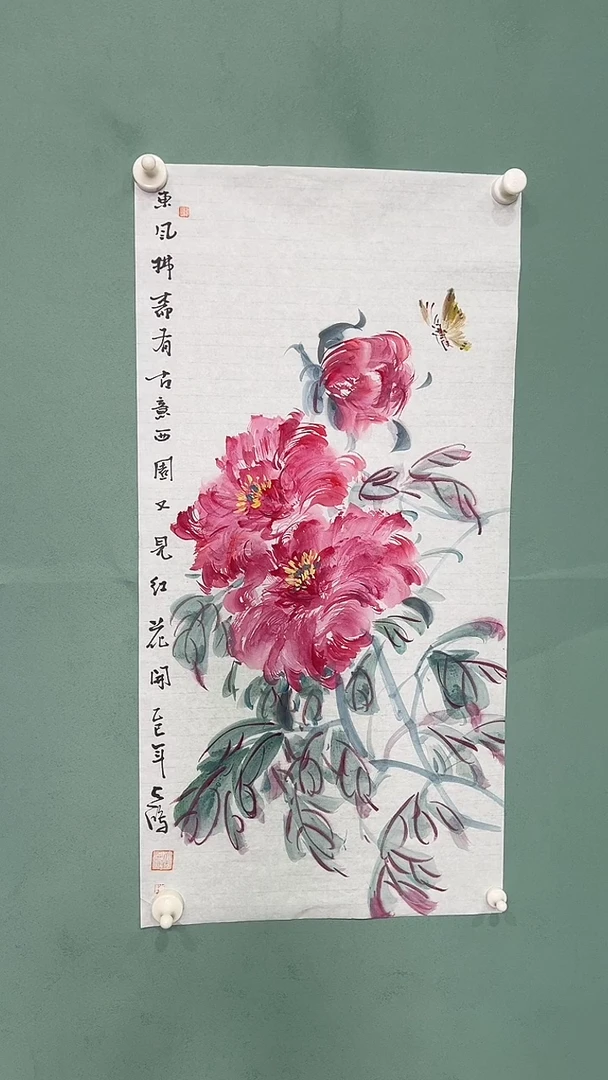 東风拂壽有古意西園又見紅花開乙巳年